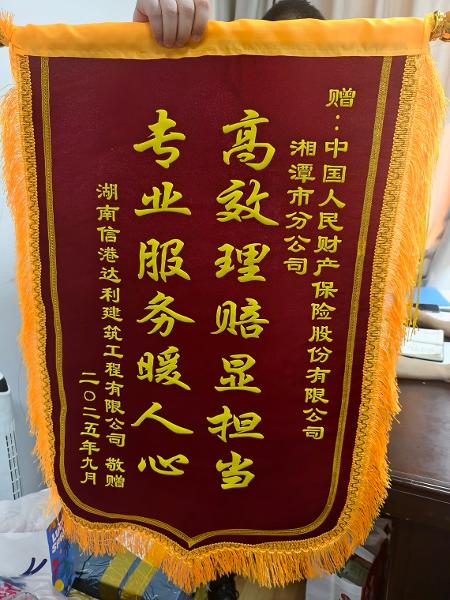 赠：中国人民财产保险股份有限公司
湘潭市分公司
高效理赔显担当
专业服务暖人心
湖南信港达利建筑工程有限公司 敬赠
二〇二五年九月